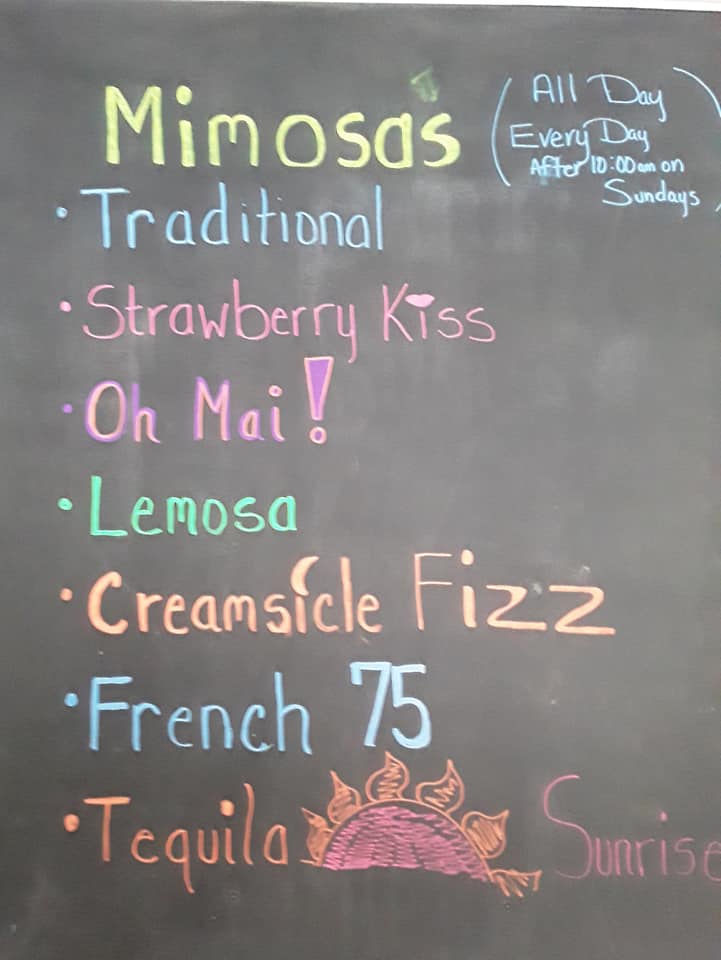 Mimosas
(All Day
Every Day
After 10:00am on
Sundays)
• Traditional
• Strawberry Kiss
• Oh Mai!
• Lemosa
• Creamsicle Fizz
• French 75
• Tequila Sunrise